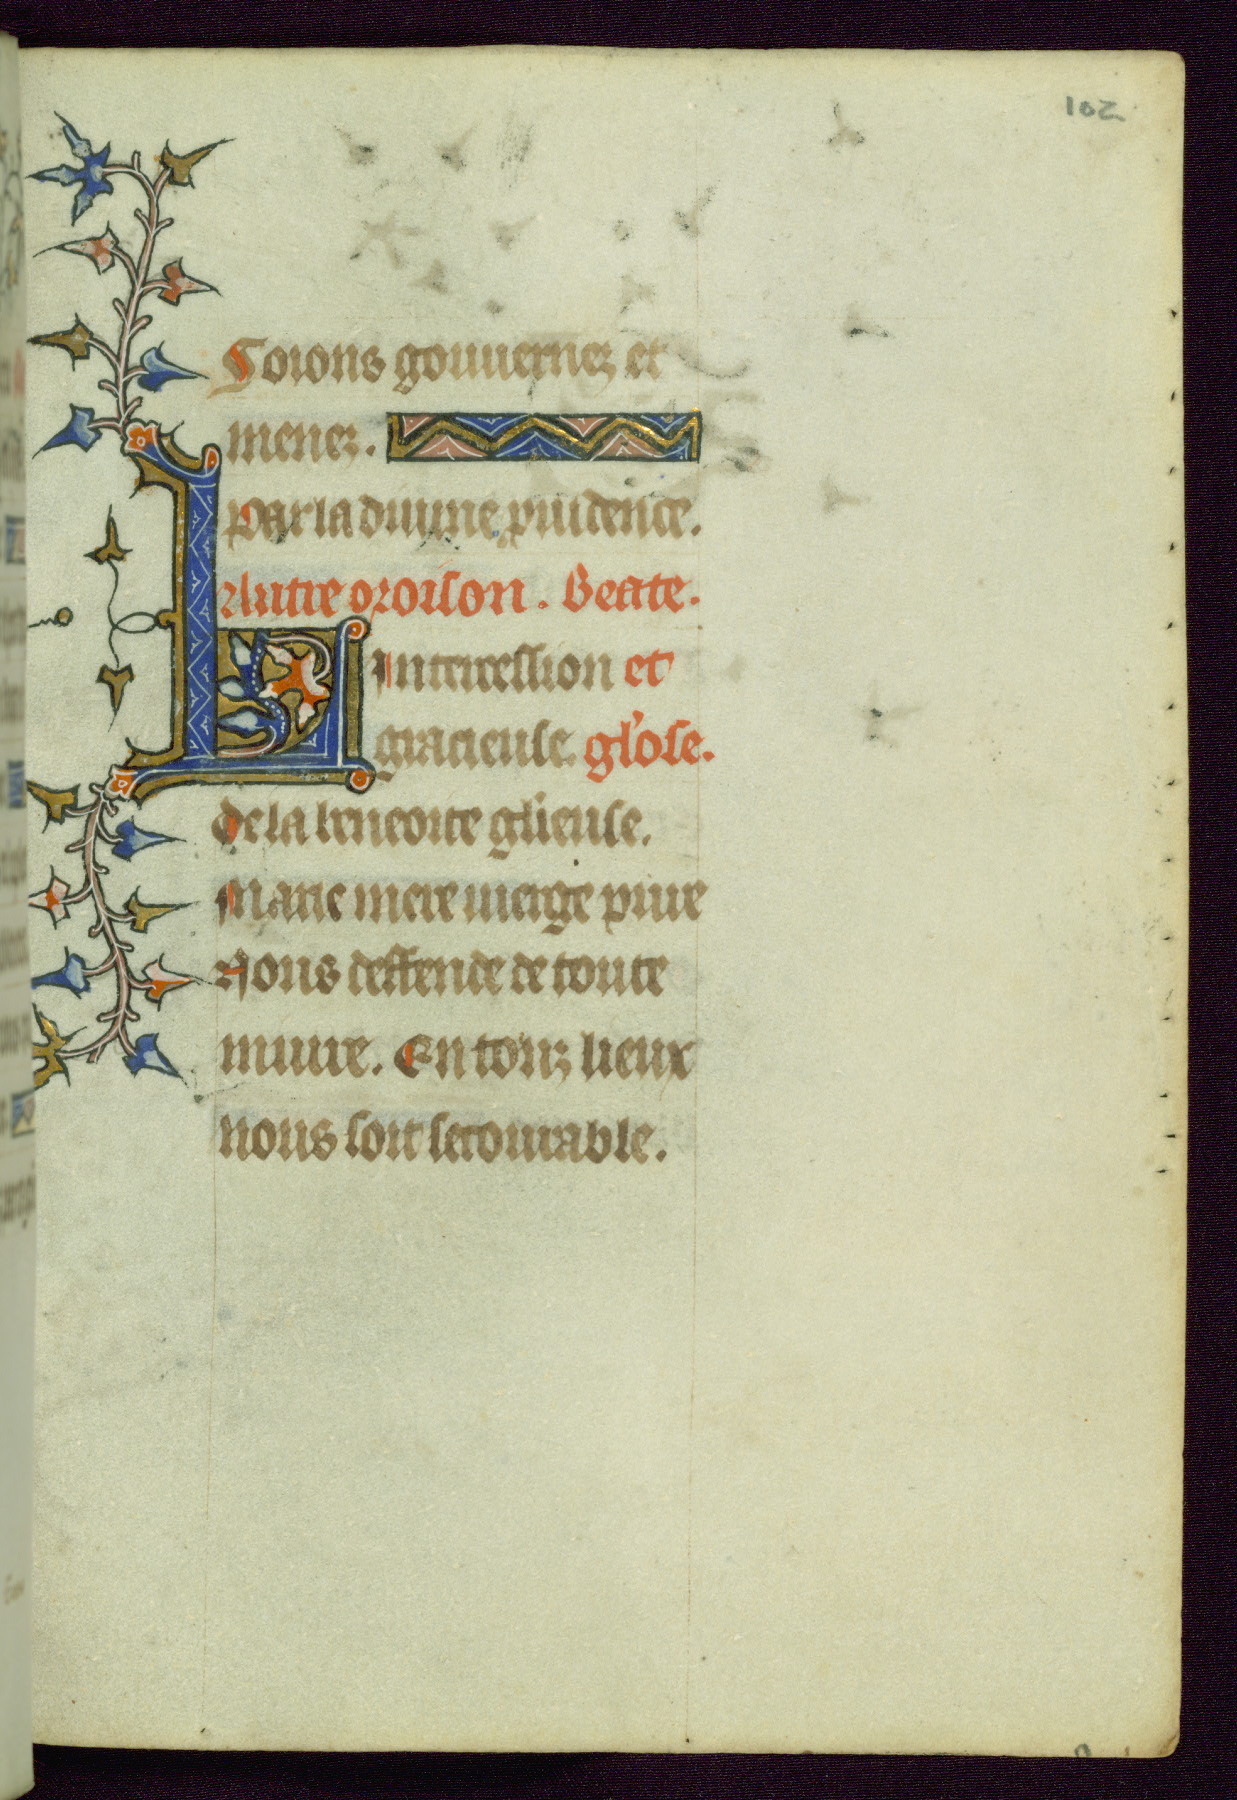 102
Soions gouuernez et
menez.
Par la diuine pruidence.
Autre oroison. Beate.
L intercession et
gracieuse. gl'ose.
de la beneoite gl'ieuse.
Marie mere uierge pure
Nous deffende de toute
iniure. En touz lieux
nous soit secourable.